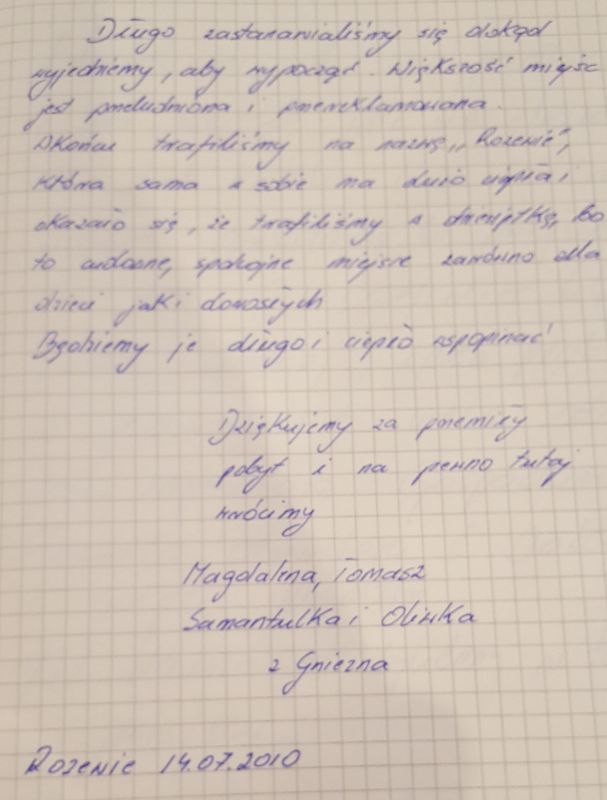 Długo zastanawialiśmy się dokąd
wyjedziemy, aby wypocząć. Większość miejsc
jest przeludniona i przereklamowana.
Wkońcu trafiliśmy na nazwę „Rozenie",
która sama w sobie ma dużo ciepła i
okazało się, że trafiliśmy w dziesiątkę, bo
to cudowne, spokojne miejsce zarówno dla
dzieci jak i dorosłych
Będziemy je długo i ciepło wspominać
Dziękujemy za przemiły
pobyt i na pewno tutaj
wrócimy
Magdalena, Tomasz
Samantulka i Oliwka
z Gniezna
Rozenie 14.07.2010